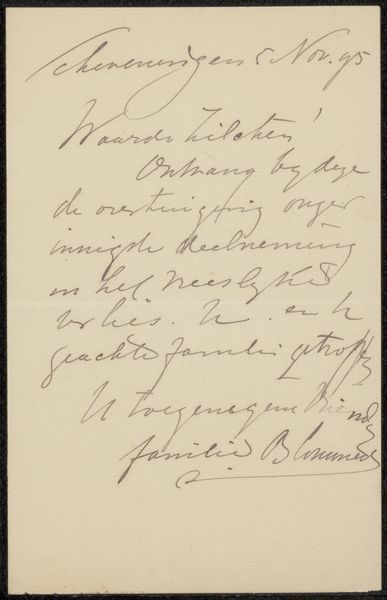 Scheveningen 5 Nov. 95
Waarde Zilcken!
Ontvang by deze
de overtuiging onzer
innigste deelneming
in het vreeslyke
verlies. U. en u
geachte familie getroffen
U toegenegene vrienden
familie Blommers